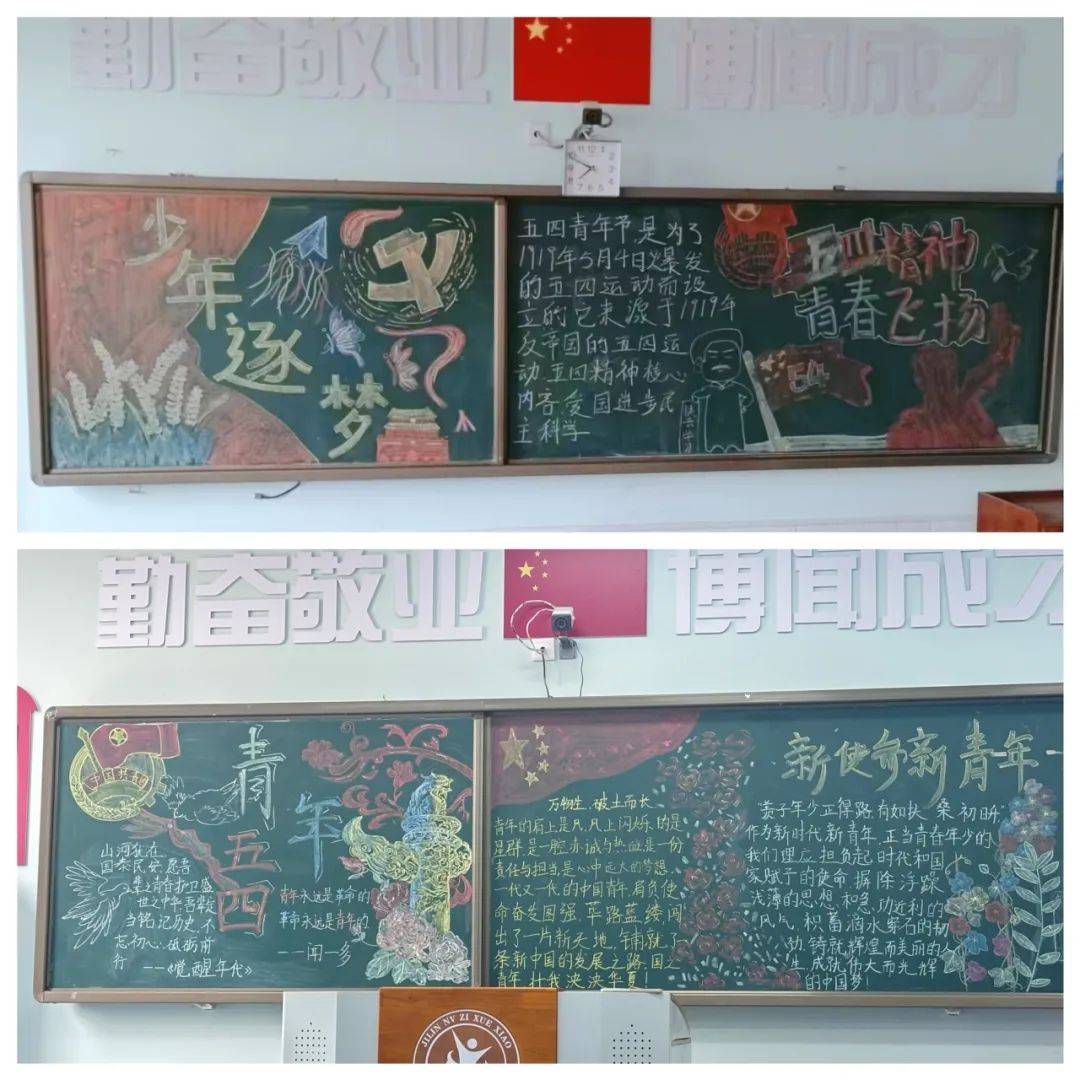 勤奋敬业
博闻成才
少年逐梦
五四青年节是为了
1919年5月4日爆发
的五四运动而设
立的它来源于1919年
反帝国的五四运
动.五四精神核心
内容.爱国进步民
主科学
五四精神
青春飞扬
54
勤奋敬业
博闻成才
青年
五四
山河犹在
国泰民安.愿吾
辈之青春护卫盛
世之中华.吾辈
当铭记历史,不
忘初心,砥砺前
行
——《觉醒年代》
青年永远是革命的
革命永远是青年的
——闻一多
万物生,破土而长
青年的肩上是风,风上闪烁的是
星群是一腔赤诚与热血是一份
责任与担当是心中远大的梦想
一代又一代的中国青年肩负使
命奋发图强,筚路蓝缕闯
出了一片新天地,铺就了一
条新中国的发展之路.国之
青年,壮我泱泱华夏!
新使命新青年
"贵子年少正得路,有如扶桑初日昇"
作为新时代新青年,正当青春年少的
我们理应担负起时代和国
家赋予的使命摒除浮躁
浅薄的思想和急功近利的
风气,积蓄滴水穿石的韧
劲,铸就辉煌而美丽的人
生,成就伟大而光辉
的中国梦!
JILIN NV ZI XUE XIAO